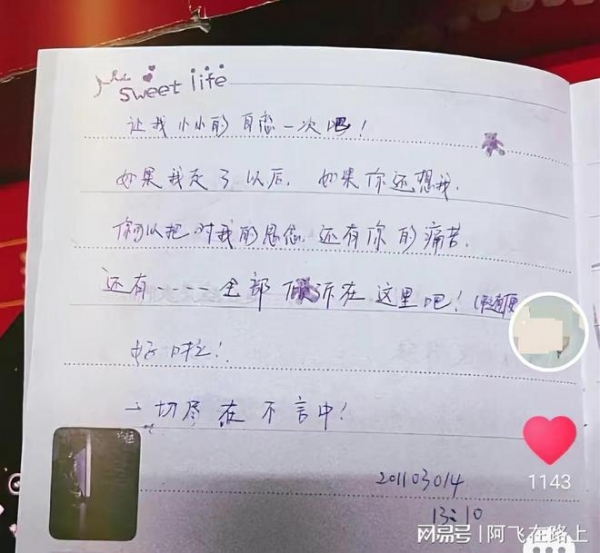 sweet life
让我小小的自恋一次吧！
如果我走了以后，如果你还想我.
你可以把对我的思念.还有你的痛苦.
还有----全部倾诉在这里吧！
好吗！
一切尽在不言中！
201103014
13:10
1143
网易号 | 阿飞在路上